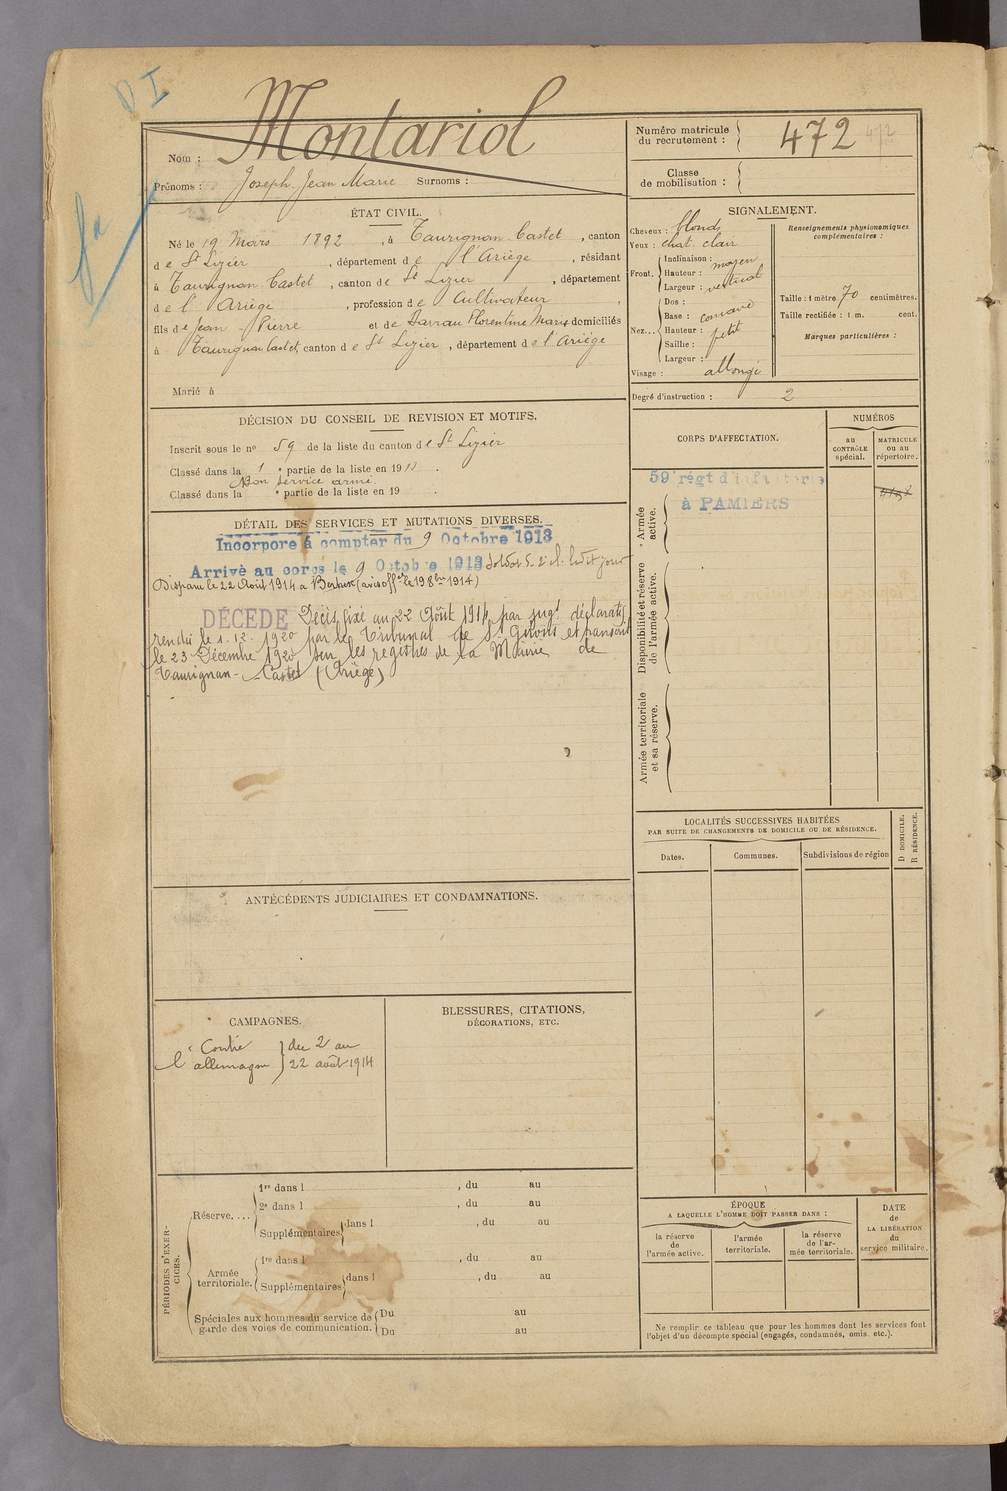 D I
Nom : Montariol
Prénoms : Joseph Jean Marie Surnoms :
Numéro matricule du recrutement : 472
Classe de mobilisation :
ÉTAT CIVIL.
Né le 19 Mars 1892, à Taurignan-Castet, canton
de St Lizier, département de l'Ariège, résidant
à Taurignan-Castet, canton de St Lizier, département
de l'Ariège, profession de Cultivateur,
fils de Jean Pierre et de Darrau Florentine Marie domiciliés
à Taurignan Castet, canton de St Lizier, département de l'Ariège
Marié à
SIGNALEMENT.
Cheveux : blonds
Yeux : chat. clair
Front. Inclinaison : moyen
Hauteur :
Largeur : vertical
Nez... Dos :
Base : concave
Hauteur : petit
Saillie :
Largeur :
Visage : allongé
Renseignements physionomiques
complémentaires :
Taille : 1 mètre 70 centimètres.
Taille rectifiée : 1 m. cent.
Marques particulières :
Degré d'instruction : 2
DÉCISION DU CONSEIL DE REVISION ET MOTIFS.
Inscrit sous le no 59 de la liste du canton de St Lizier
Classé dans la 1 e partie de la liste en 1913.
Bon service armé.
Classé dans la e partie de la liste en 19 .
DÉTAIL DES SERVICES ET MUTATIONS DIVERSES.
Incorporé à compter du 9 Octobre 1913
Arrivé au corps le 9 Octobre 1913 soldat de 2e cl. ledit jour
Disparu le 22 Août 1914 à Bertrix (avis offel le 19 8bre 1914)
DÉCÉDÉ Décès fixé au 22 Août 1914 par jugt déclaratif
rendu le 1.12.1920 par le Tribunal de St Girons et transcrit
le 23 Décembre 1920 sur les registres de la Mairie de
Taurignan-Castet (Ariège)
CORPS D'AFFECTATION.
NUMÉROS
au
CONTRÔLE
spécial.
MATRICULE
ou au
répertoire.
59e régt d'infanterie
à PAMIERS
Armée
active.
Disponibilité et réserve
de l'armée active.
Armée territoriale
et sa réserve.
LOCALITÉS SUCCESSIVES HABITÉES
PAR SUITE DE CHANGEMENTS DE DOMICILE OU DE RÉSIDENCE.
Dates.
Communes.
Subdivisions de région
D DOMICILE.
R RÉSIDENCE.
ANTÉCÉDENTS JUDICIAIRES ET CONDAMNATIONS.
CAMPAGNES.
Contre du 2 au
l'allemagne 22 août 1914
BLESSURES, CITATIONS,
DÉCORATIONS, ETC.
PÉRIODES D'EXER-
CICES.
Réserve.... 1re dans l , du au
2e dans l , du au
Supplémentaires dans l , du au
Armée
territoriale. 1re dans l , du au
Supplémentaires dans l , du au
Spéciales aux hommes du service de Du au
garde des voies de communication. Du au
ÉPOQUE
A LAQUELLE L'HOMME DOIT PASSER DANS :
la réserve
de
l'armée active.
l'armée
territoriale.
la réserve
de l'ar-
mée territoriale.
DATE
de
LA LIBÉRATION
du
service militaire.
Ne remplir ce tableau que pour les hommes dont les services font
l'objet d'un décompte spécial (engagés, condamnés, omis, etc.).